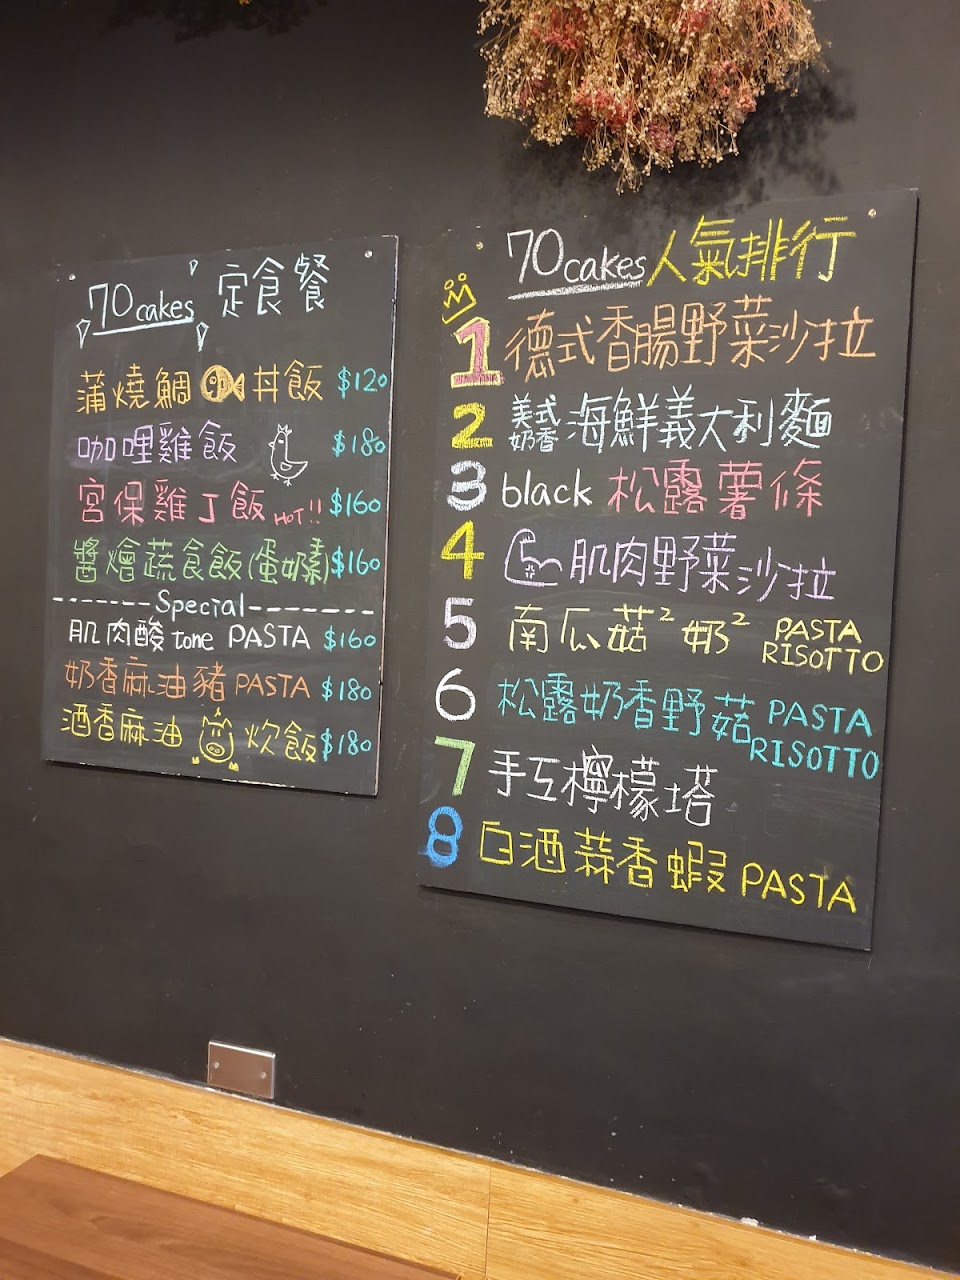 70 cakes 定食餐
蒲燒鯛丼飯 $120
咖哩雞飯 $180
宮保雞丁飯 HOT!! $160
醬燴蔬食飯(蛋奶素) $160
-------Special-------
肌肉酸 tone PASTA $160
奶香麻油豬 PASTA $180
酒香麻油炊飯 $180
70 cakes 人氣排行
1 德式香腸野菜沙拉
2 美式奶香 海鮮義大利麵
3 black 松露薯條
4 肌肉野菜沙拉
5 南瓜菇² 奶² PASTA RISOTTO
6 松露奶香野菇 PASTA RISOTTO
7 手工檸檬塔
8 白酒蒜香蝦 PASTA